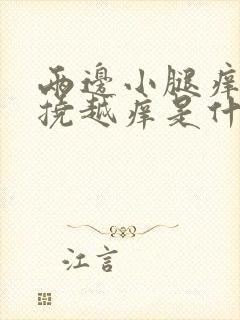 兩邊小腿痒
挠越痒是什
江言